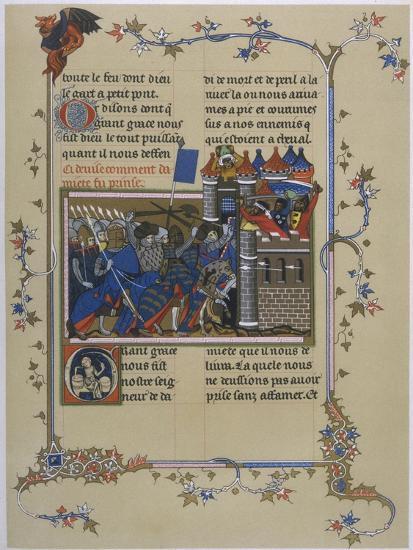 toute le feu dont dieu
le gart a petit pont.
Or disons dont q̃
g̃unt grace nous
fist dieu le tout puissãt
quant il nous deffen
Ci devise comment da
miete fu prinse.
di de mort et de peril a la
rivee la ou nous arriva
mes a pie et courumes
sus a nos ennemis q̃
qui estoient a cheval.
Grant grace
nous fist
nostre seig
neur de da
miete que il nous de
livra. La quele nous
ne deussions pas avoir
prise sanz affamer. Et